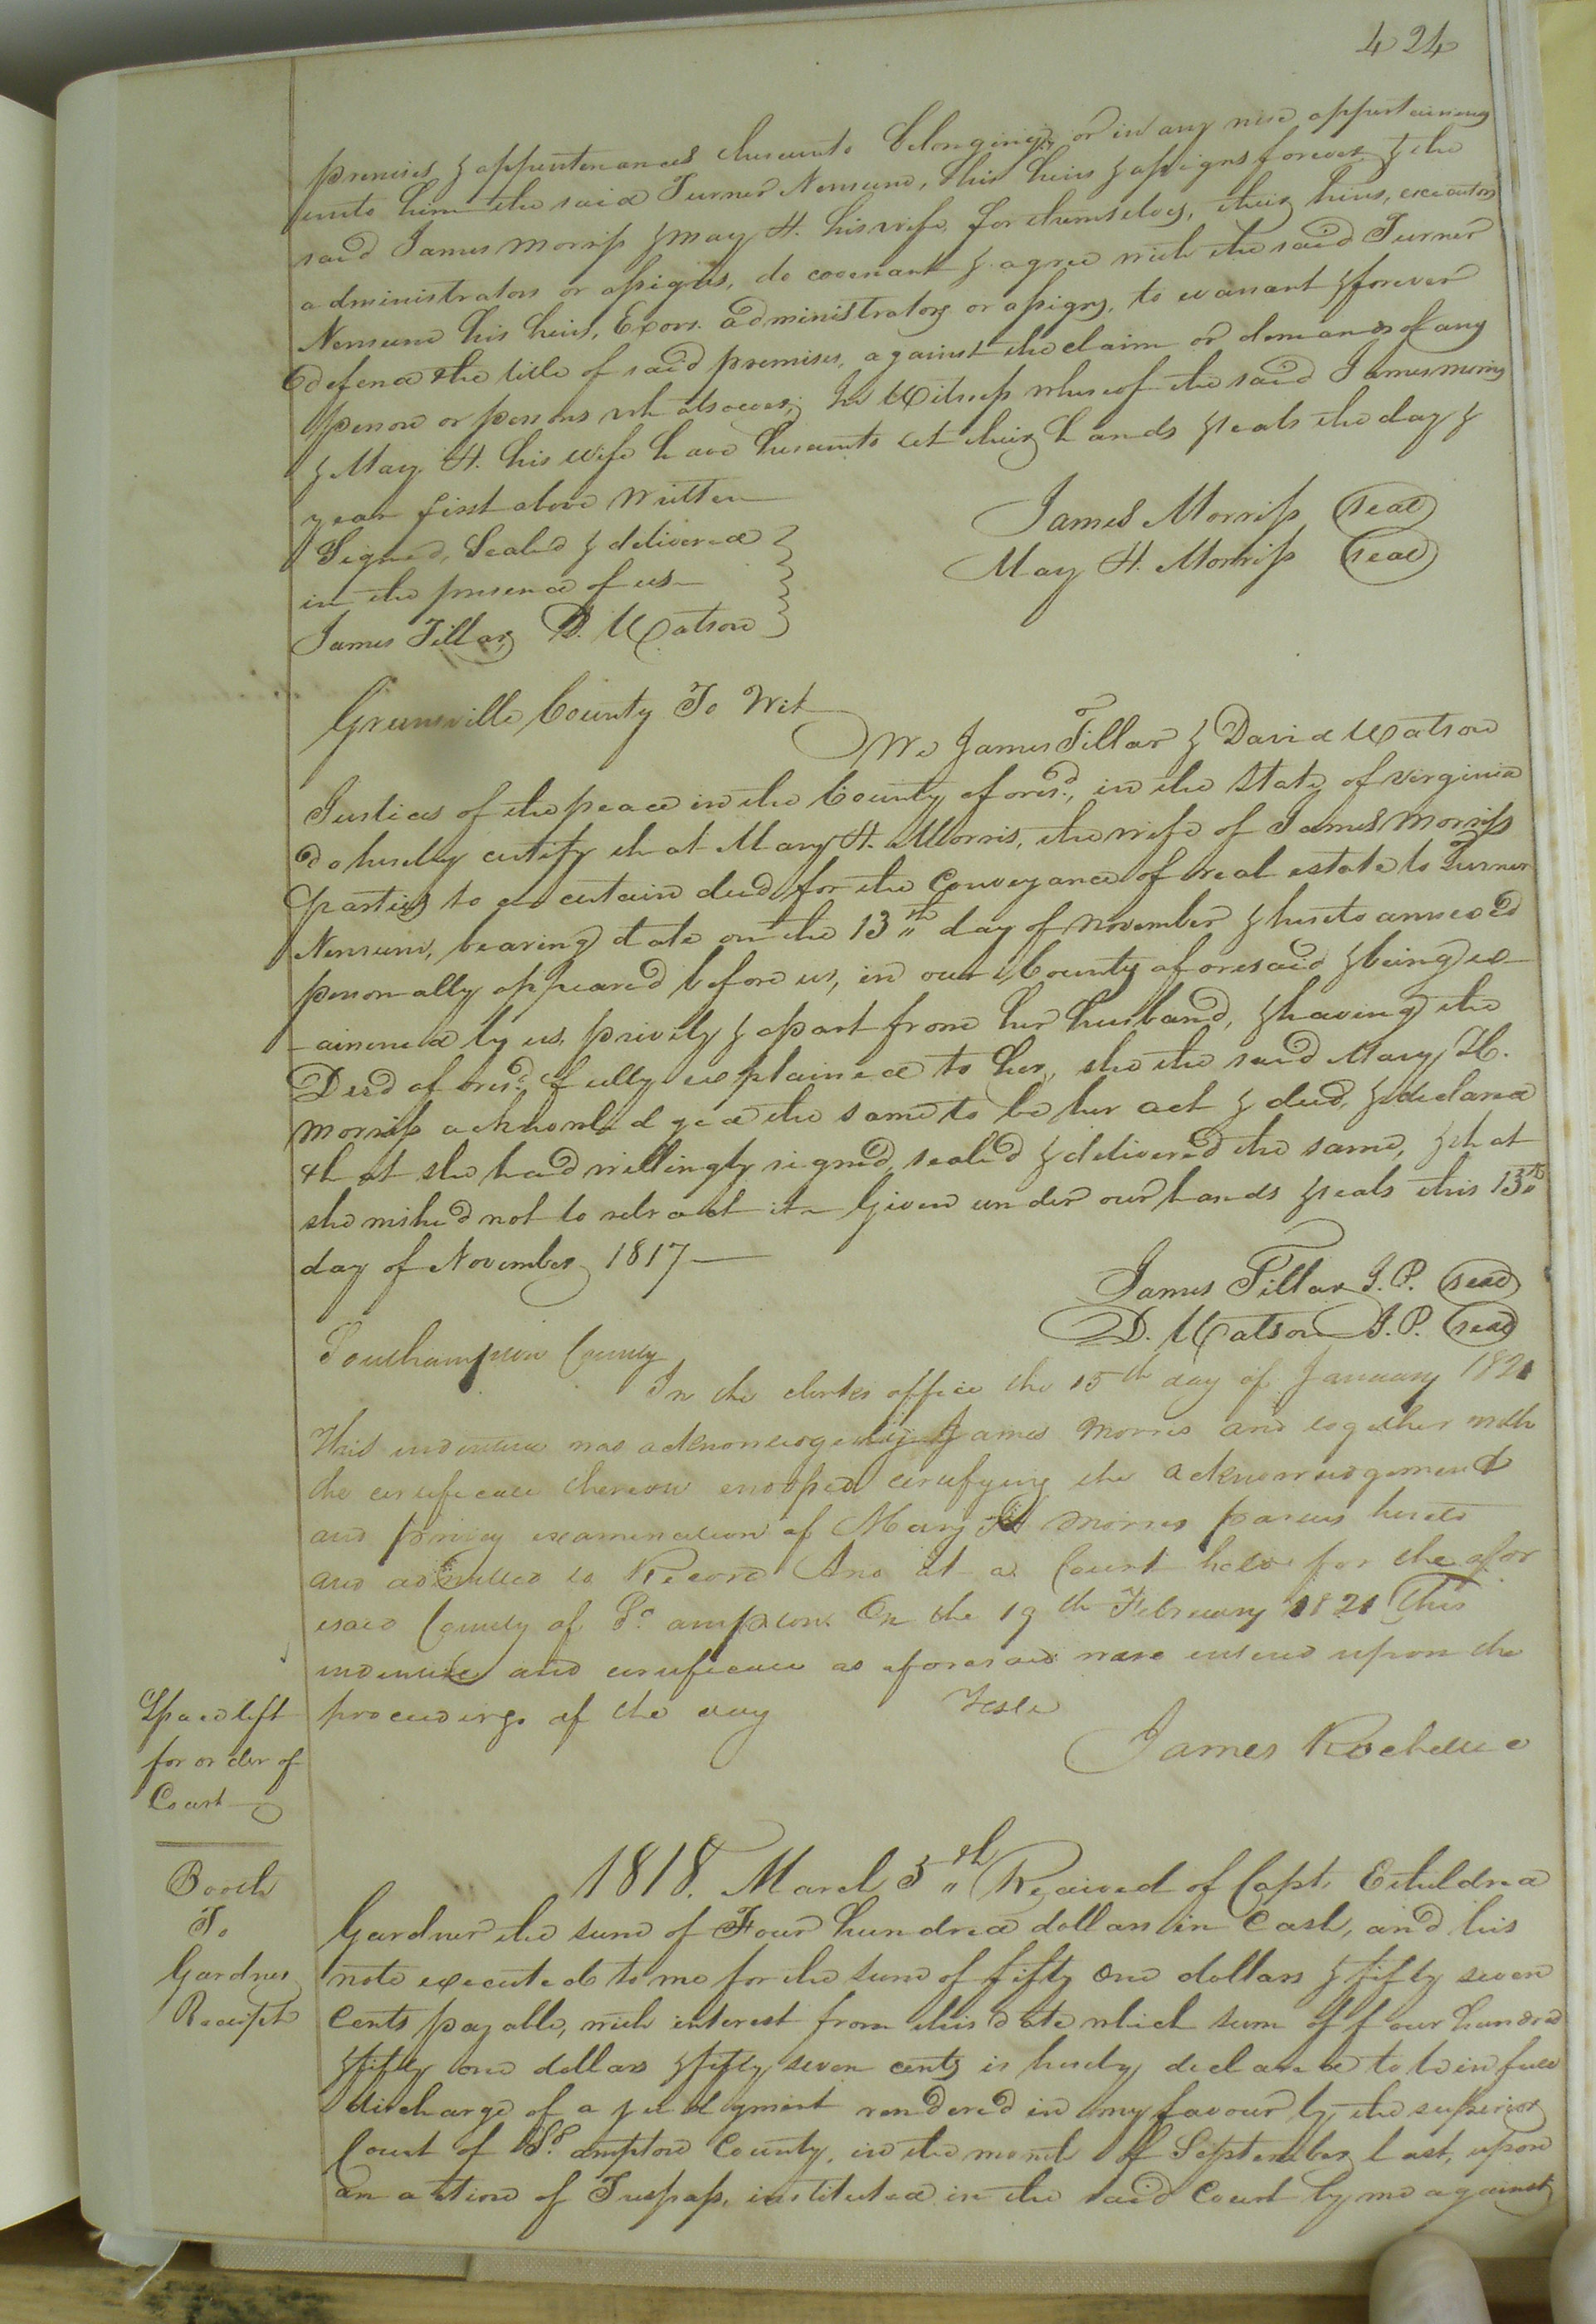 424
premises & appurtenances thereunto belonging, or in any wise appertaining
unto him the said Turner Newsum, his heirs & assigns forever & the
said James Morriss & May H. his wife, for themselves, their heirs, executors
administrators or assigns, do covenant & agree with the said Turner
Newsum his heirs, Exors. administrators or assigns, to warrant & forever
defend the title of said premises, against the claim or demands of any
person or persons whatsoever; In Witness whereof the said James Morris
& May H. his wife have hereunto set their hands & seals the day &
year first above written
Signed, Sealed & delivered
in the presence of us
James Tillar, D. Watson
James Morriss seal
May H. Morriss seal
Greensville County To Wit
We James Tillar & David Watson
Justices of the peace in the County aforesd., in the State of Virginia
do hereby certify that Mary H. Morris, the wife of James Morriss
parties to a certain deed for the Conveyance of real estate to Turner
Newsum, bearing date on the 13th day of November & hereto annexed
personally appeared before us, in our County aforesaid & being ex-
-amined by us, privily & apart from her husband, & having the
Deed aforesd. fully explained to her, she the said Mary H.
Morriss acknowledged the same to be her act & deed, & declared
that she had willingly signed, sealed & delivered the same, & that
she wished not to retract it Given under our hands & seals this 13th
day of November 1817
James Tillar J.P. seal
D. Watson J.P. seal
Southampton County
In the clerks office the 15th day of January 1821
This indenture was acknowledged by James Morris and together with
the certificate thereon endorsed certifying the acknowledgement
and privy examination of Mary H Morris parties hereto
and admitted to Record And at a Court held for the afor
esaid County of So. ampton On the 19th February 1821 This
indenture and certificate as aforesaid were entered upon the
proceedings of the day Teste
James Rochelle
Space left
for order of
Court
Booth
To
Gardner
Receipt
1818. March 5th Received of Capt. Etheldred
Gardner the sum of Four hundred dollars in Cash, and his
note executed to me for the sum of fifty one dollars & fifty seven
Cents payable, with interest from this date which sum of four hundred
& fifty one dollars & fifty seven cents is hereby declared to be in full
discharge of a judgment rendered in my favour by the superior
Court of So. ampton County, in the month of September last, upon
an action of Trespass, instituted in the said Court by me against